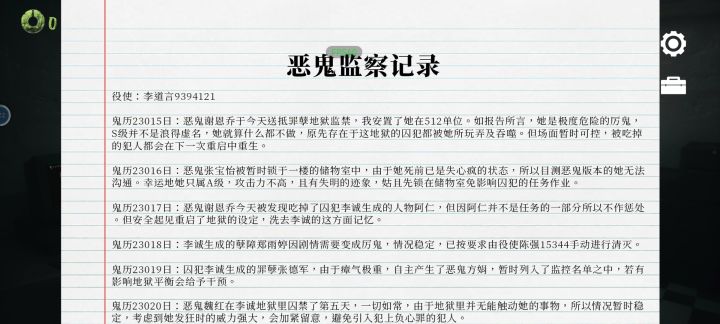 0
恶鬼监察记录
役使：李道言9394121
鬼历23015日：恶鬼谢恩乔于今天送抵罪孽地狱监禁，我安置了她在512单位。如报告所言，她是极度危险的厉鬼，
S级并不是浪得虚名，她就算什么都不做，原先存在于这地狱的囚犯都被她所玩弄及吞噬。但场面暂时可控，被吃掉
的犯人都会在下一次重启中重生。
鬼历23016日：恶鬼张宝怡被暂时锁于一楼的储物室中，由于她死前已是失心疯的状态，所以目测恶鬼版本的她无法
沟通。幸运地她只属A级，攻击力不高，且有失明的迹象，姑且先锁在储物室免影响囚犯的任务作业。
鬼历23017日：恶鬼谢恩乔今天被发现吃掉了囚犯李诚生成的人物阿仁，但因阿仁并不是任务的一部分所以不作惩处
。但安全起见重启了地狱的设定，洗去李诚的这方面记忆。
鬼历23018日：李诚生成的孽障郑雨婷因剧情需要变成厉鬼，情况稳定，已按要求由役使陈强15344手动进行清灭。
鬼历23019日：囚犯李诚生成的罪孽张德军，由于瘴气极重，自主产生了恶鬼方娟，暂时列入了监控名单之中，若有
影响地狱平衡会给予干预。
鬼历23020日：恶鬼魏红在李诚地狱里囚禁了第五天，一切如常，由于地狱里并无能触动她的事物，所以情况暂时稳
定，考虑到她发狂时的威力强大，会加紧留意，避免引入犯上负心罪的犯人。